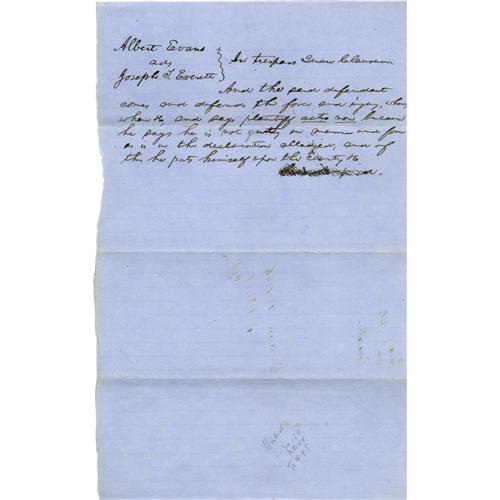 Albert Evans
ads
Joseph T. Everett
In trespass Quare Clausum
And the said defendant
comes and defends the force and injury, when
when &c, and says plaintiff actio non because
he says he is not guilty in manner and form
as is in the declaration alleged, and of
this he puts himself upon the County &c